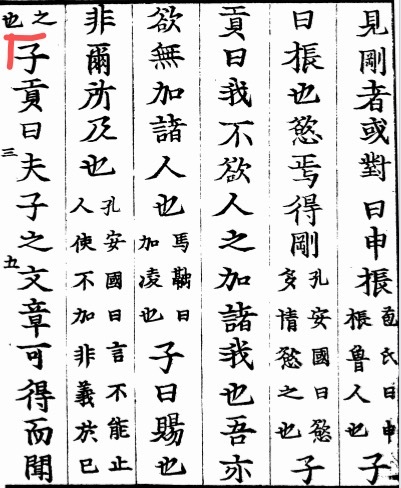 見剛者或對曰申棖苞氏曰申棖魯人也子
曰棖也慾焉得剛孔安國曰慾多情慾之也子
貢曰我不欲人之加諸我也吾亦
欲無加諸人也馬融曰加凌也子曰賜也
非爾所及也孔安國曰言不能止人使不加非義於己
之也子貢曰夫子之文章可得而聞
三
五